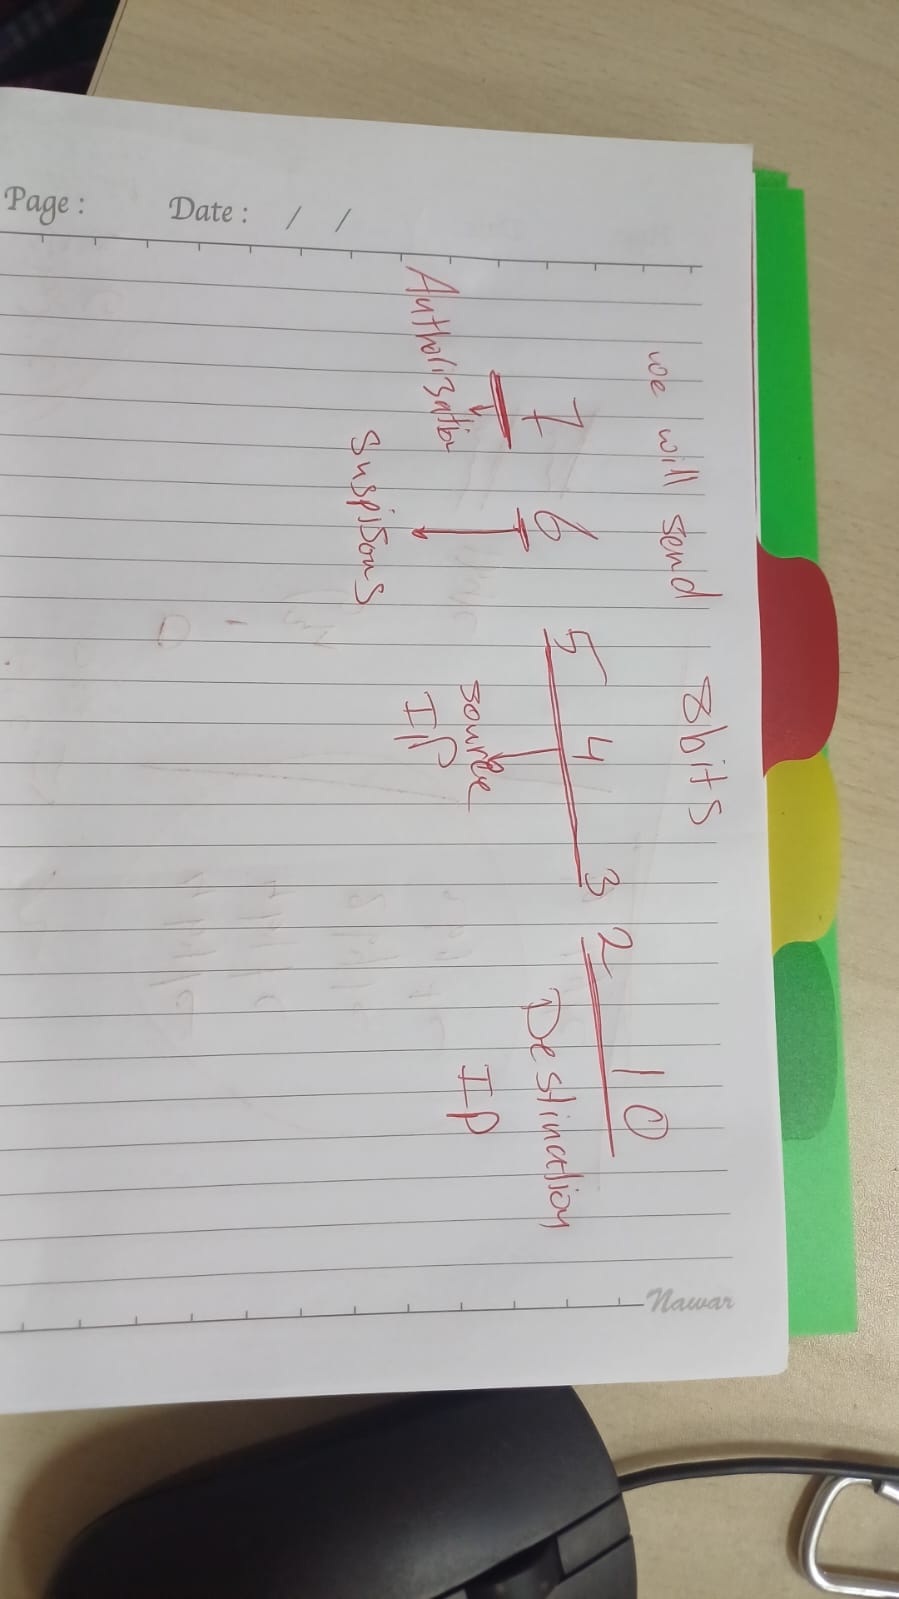 Page : Date : / /
we will send 8bits
7 6 5 4 3 2 1 0
Authorization
suspisous
source
IP
Destination
IP
Nawar